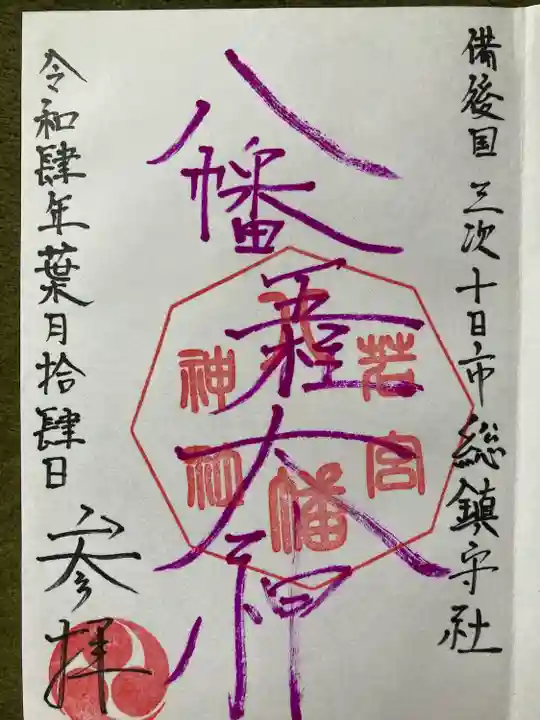 備後国 三次十日市総鎮守社
八幡大神
若宮
八幡
神社
令和肆年葉月拾肆日
参拝